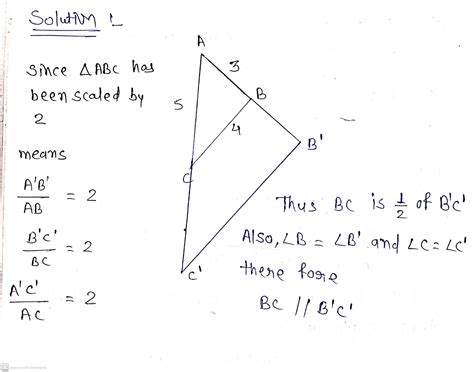 Solution 1
Since △ABC has
been scaled by
2
means
A'B'/AB = 2
B'C'/BC = 2
A'C'/AC = 2
A
3
B
5
4
B'
C
C'
Thus BC is 1/2 of B'C'
Also, ∠B = ∠B' and ∠C = ∠C'
there fore
BC // B'C'